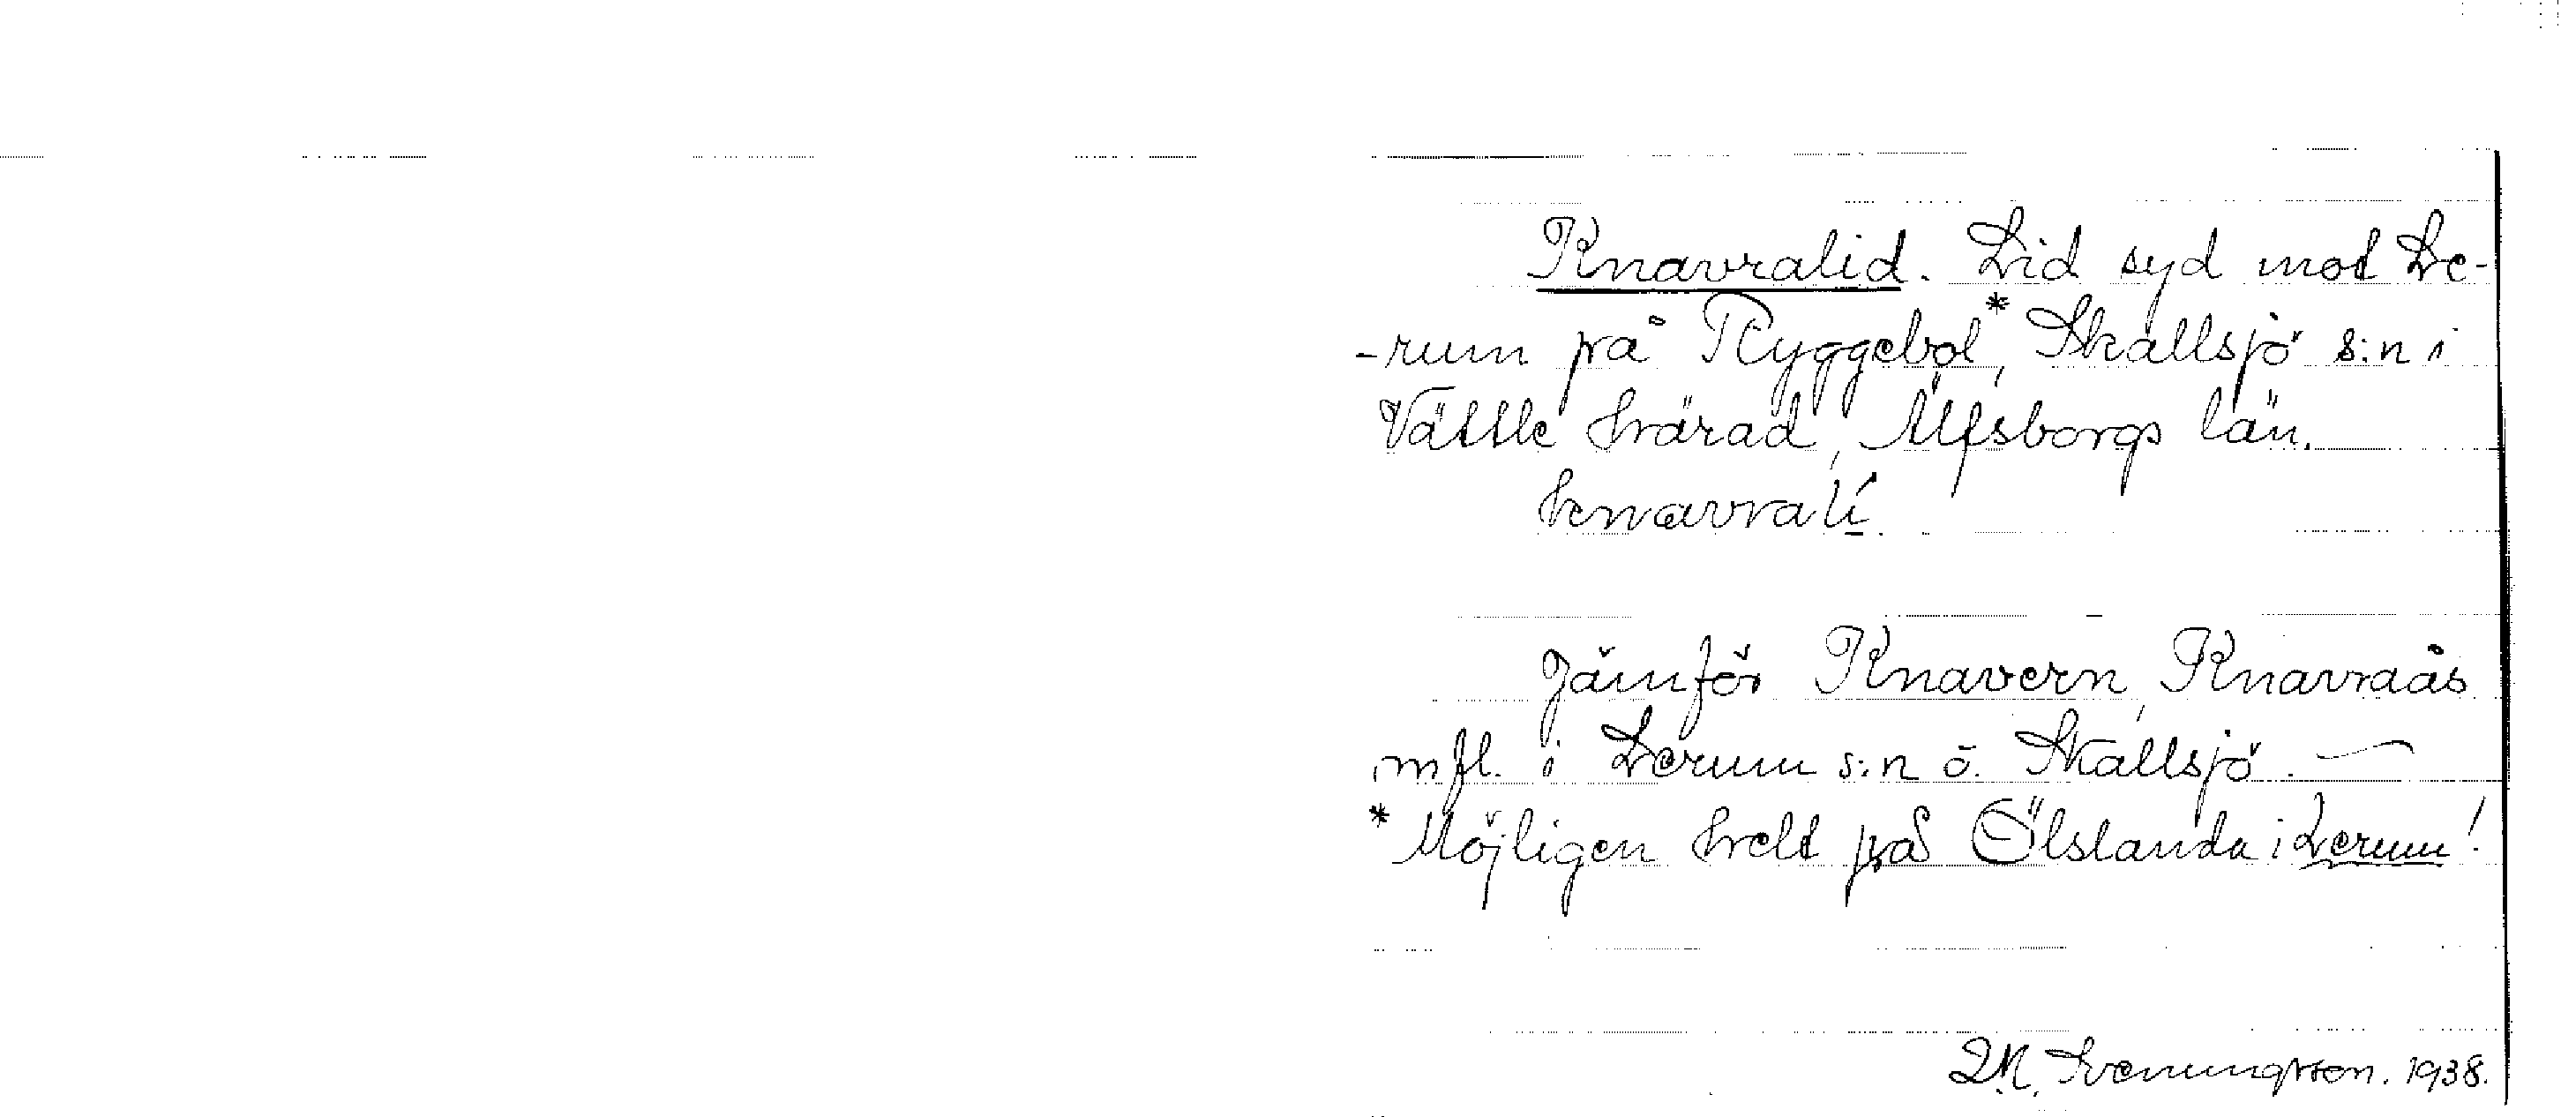 Knavralid. Lid syd mot Le-
-rum på Ryggebol*, Skallsjö s:n i
Vättle härad, Älfsborgs län.
knavralí.
Jämför Knavern, Knavraås
mfl. i Lerum s:n o. Skallsjö. —
* Möjligen helt på Ölslanda i Lerum!
Svenungsson. 1938.